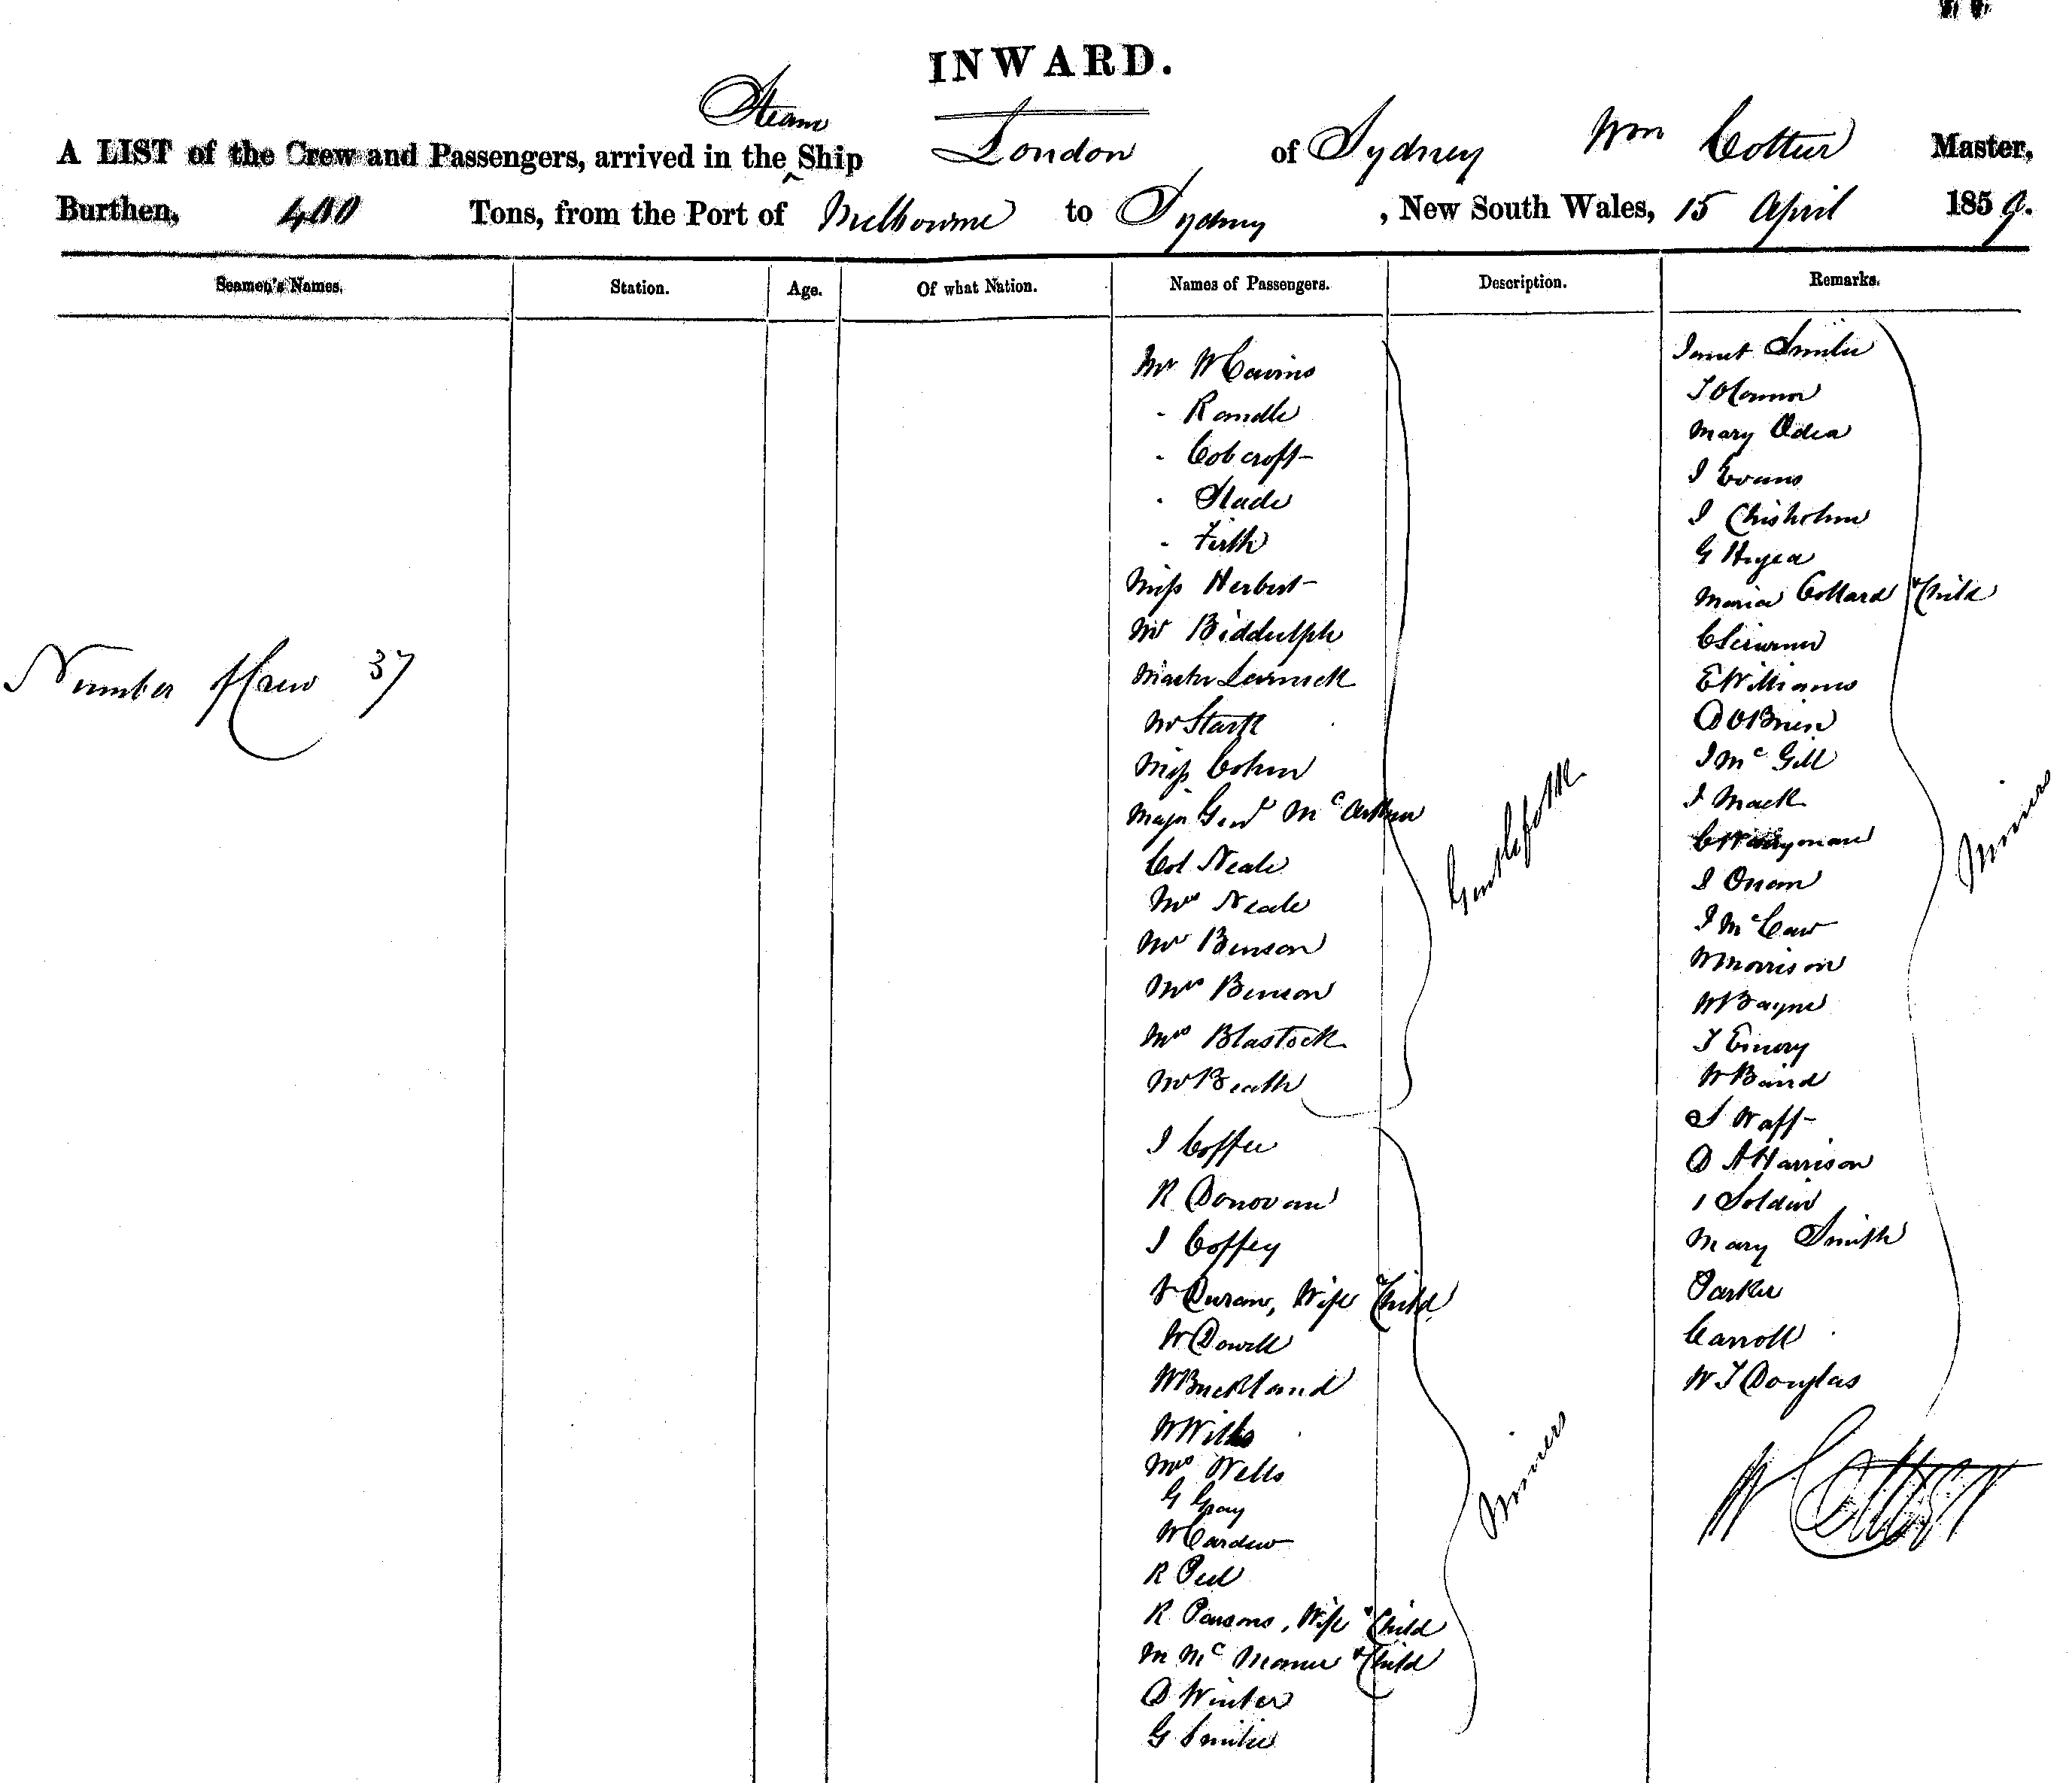 INWARD.
A LIST of the Crew and Passengers, arrived in the ^ Steam Ship London of Sydney Wm Cotter Master,
Burthen, 400 Tons, from the Port of Melbourne to Sydney, New South Wales, 15 April 1859.
Seamen's Names. Station. Age. Of what Nation. Names of Passengers. Description. Remarks.
Number of Crew 37
Mr W Cairns
" Randle
" Cobcroft
" Slade
" Firth
Miss Herbert
Mr Biddulph
Master
Mr Startt
Miss Cohen
Major Genl McArthur
Col Neale
Mrs Neale
Mr Benson
Mrs Benson
Mrs Blastock
Mr Beath
Gentlefolk
J Coffee
R Donovan
J Coffey
Duran, Wife & Child
W Dowell
W Buckland
W Wills
Mrs Wells
G Gray
W Cardew
R Peel
R Parsons, Wife & Child
M Mc & Child
D Winter
G Smilie
Miners
Janet Smilie
T OConnor
Mary Odea
J Evans
J Chisholm
G
Maria Collard & Child
C
E Williams
D OBrien
J McGill
J Mack
C
J Onan
J McCaw
W Morrison
W Bayne
T Emery
W Baird
J Waff
D A Harrison
1 Soldier
Mary Smith
Parker
Carroll
W T Douglas
Miners
W Cotter